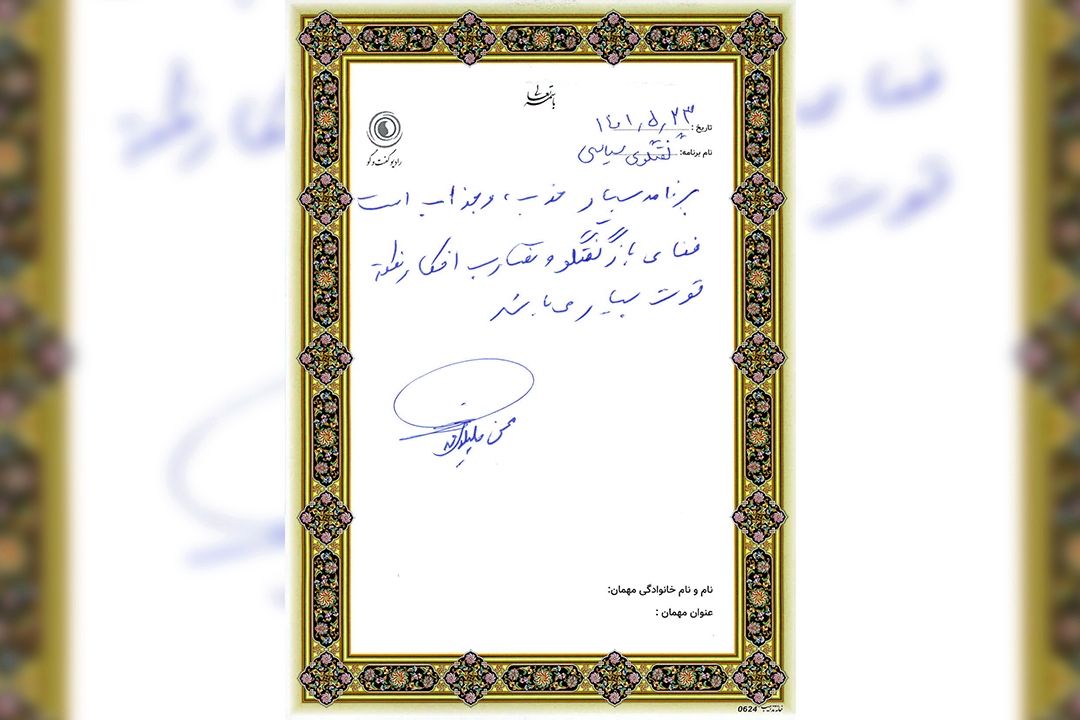 باسمه تعالی
تاریخ: ۱۴۰۱/۵/۲۳
رادیو گفت و گو
نام برنامه: گفتگوی سیاسی
برنامه بسیار خوب، و جذاب است
فضای باز گفتگو و تضارب افکار نقطه
قوت بسیار می باشد
محسن
نام و نام خانوادگی مهمان:
عنوان مهمان :
0624